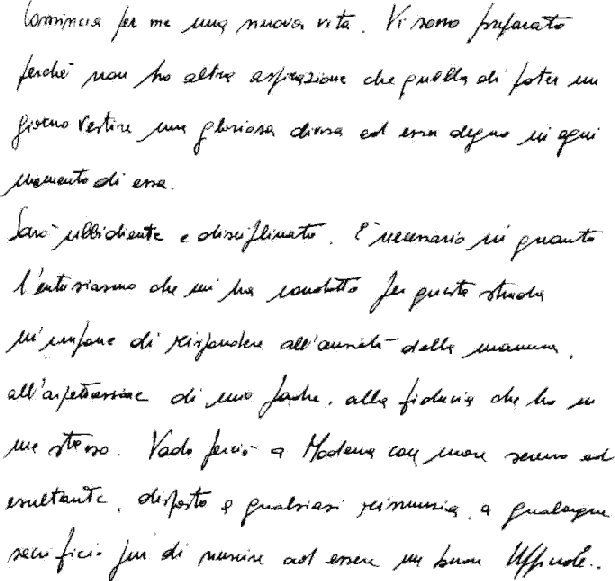 Comincia per me una nuova vita. Vi sono preparato
perché non ho altra aspirazione che quella di poter un
giorno vestire una gloriosa divisa ed esser degno in ogni
momento di essa.
Sarò ubbidiente e disciplinato. È necessario in quanto
l'entusiasmo che mi ha condotto per questa strada
m'impone di rispondere all'ansietà della mamma,
all'aspettazione di mio padre, alla fiducia che ho in
me stesso. Vado perciò a Modena con cuore sereno ed
esultante, disposto a qualsiasi rinuncia, a qualunque
sacrificio pur di riuscire ad essere un buon Ufficiale.